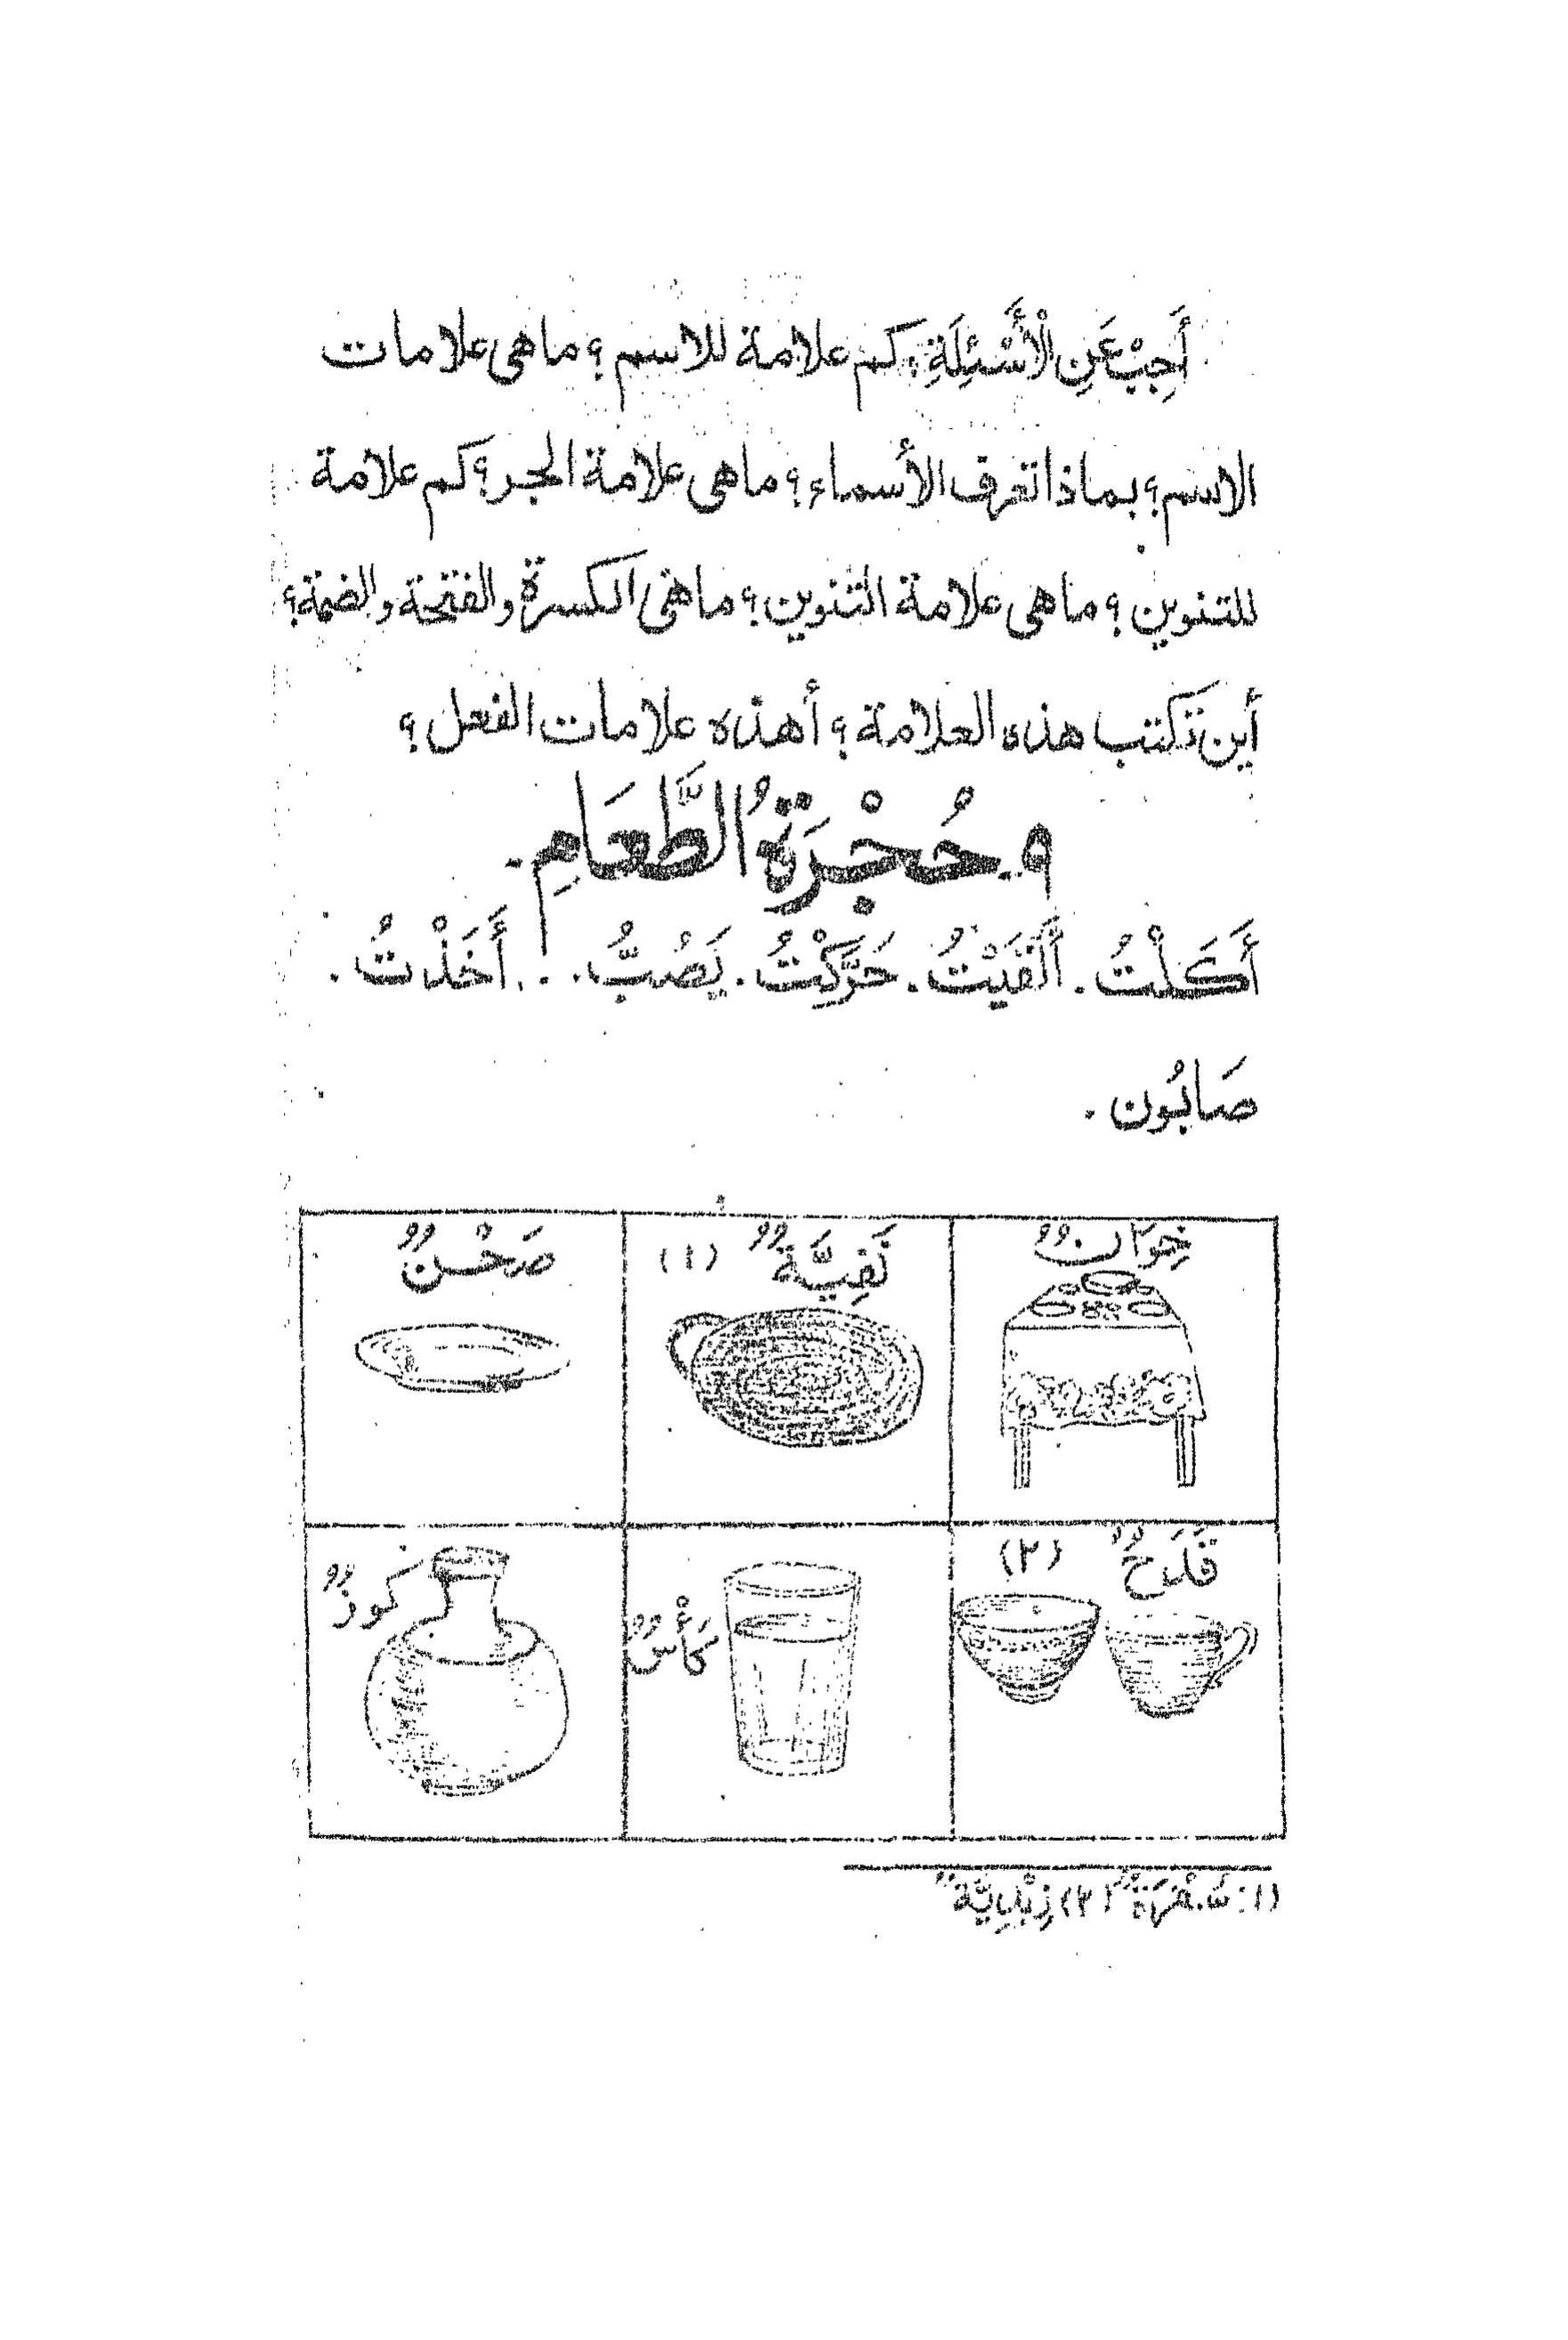 أَجِبْ عَنِ الْأَسْئِلَةِ. كم علامة للاسم؟ ماهى علامات
الاسم؟ بماذا تعرف الأسماء؟ ماهى علامة الجر؟ كم علامة
للتنوين؟ ماهى علامة التنوين؟ ماهى الكسرة والفتحة والضمة؟
أين تكتب هذه العلامة؟ أهذه علامات الفعل؟
٩ـ حُجْرَةُ الطَّعَامِ.
أَكَلْتُ. أَلْقَيْتُ. حَرَّكْتُ. يَصُبُّ... أَخَذْتُ.
صَابُون.
خِوَانٌ
نَفِيَّةٌ (١)
صَحْنٌ
قَدَحٌ (٢)
كَأْسٌ
كوزٌ
(١) سُفْرَةٌ (٢) زِبْدِيَّةٌ